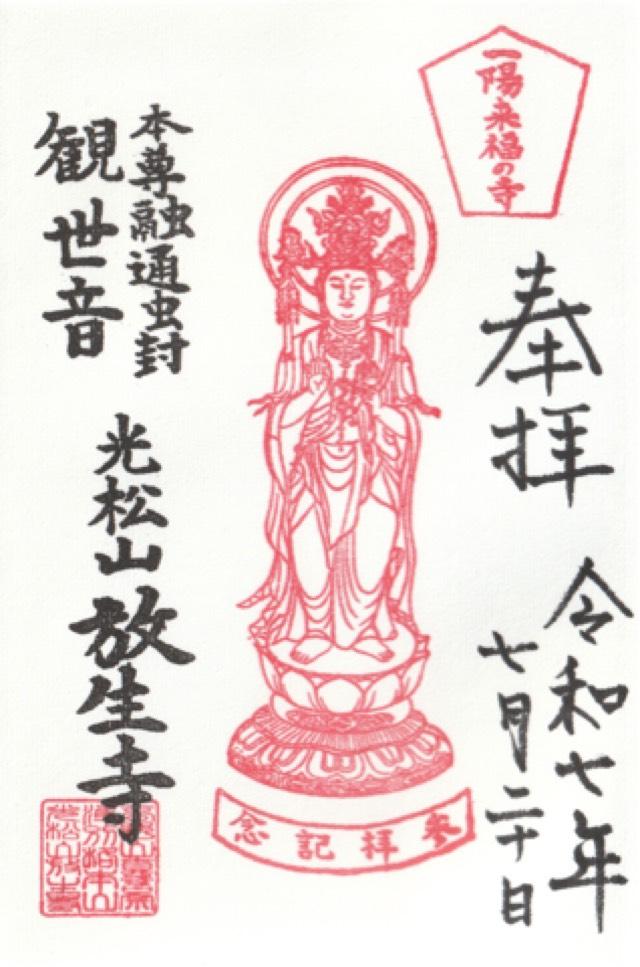 一陽来福の寺
奉拝
令和七年
七月二十日
参拝記念
本尊融通虫封
観世音
光松山放生寺